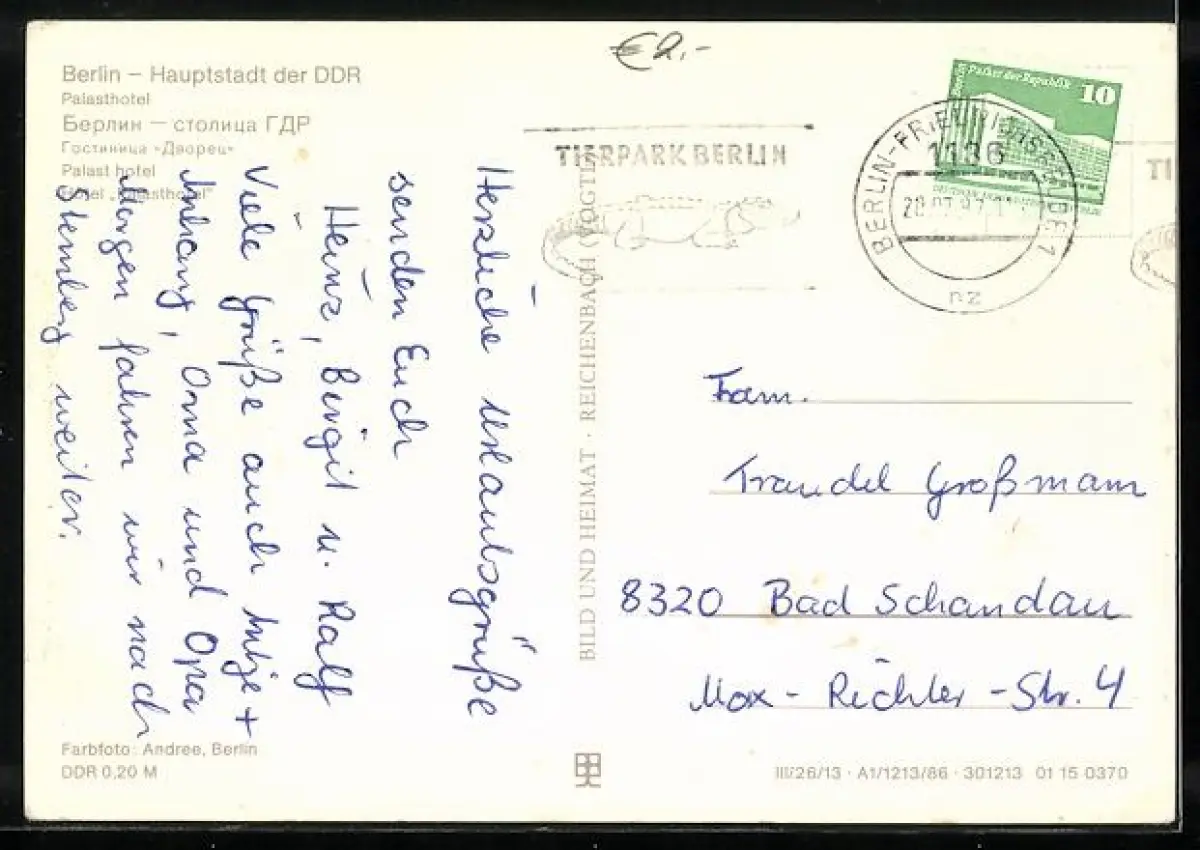 Berlin – Hauptstadt der DDR
Palasthotel
Берлин — столица ГДР
Гостиница «Дворец»
Palast hotel
Hotel „Palasthotel"
Herzliche Urlaubsgrüße
senden Euch
Heinz, Birgit u. Ralf
Viele Grüße auch Antje +
Anhang, Oma und Opa
Morgen fahren wir nach
Sternberg weiter.
Farbfoto: Andree, Berlin
DDR 0,20 M
BILD UND HEIMAT · REICHENBACH (VOGTL
€ 2,-
TIERPARK BERLIN
Palast der Republik
Berlin
10
BERLIN-FRIEDRICHSFELDE 1
1136
nz
TI
Fam.
Traudel Großmann
8320 Bad Schandau
Max-Richter-Str. 4
III/26/13 · A1/1213/86 · 301213 01 15 0370